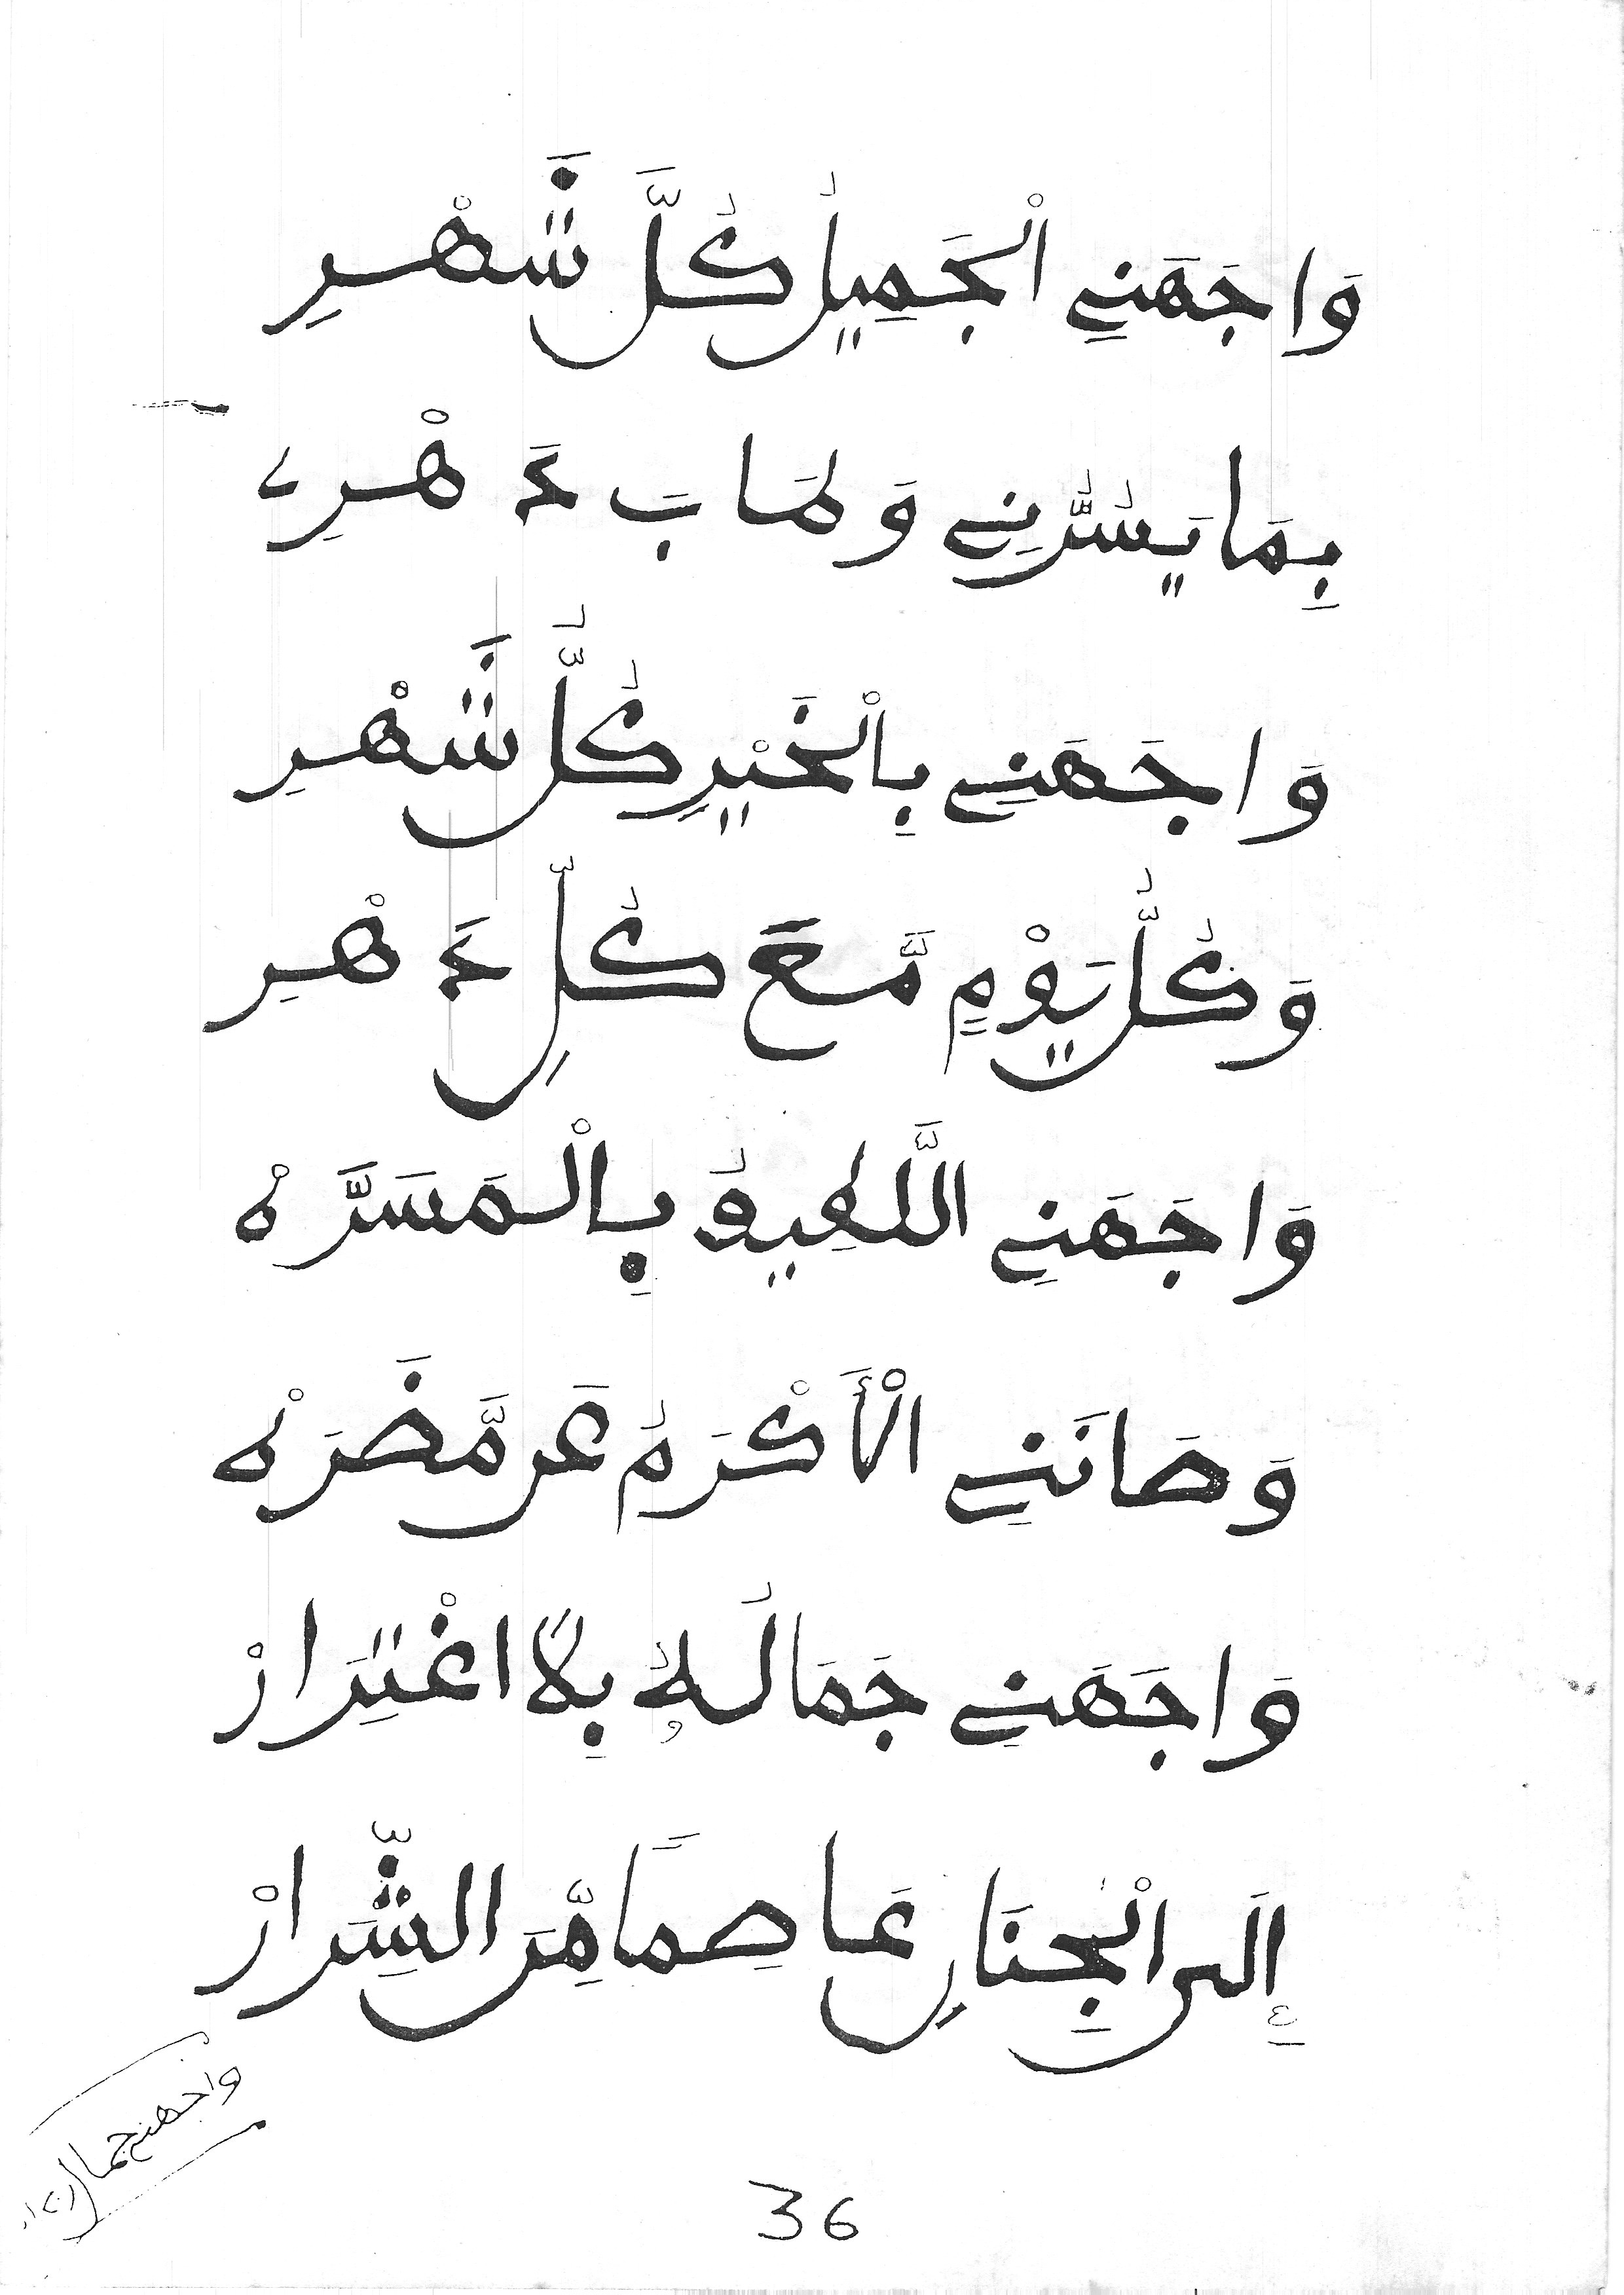 وَاجَهَنِي الْجَمِيلُ كُلَّ شَهْرِ
بِمَا يَسُرُّنِي وَطَابَ دَهْرِي
وَاجَهَنِي بِالْخَيْرِ كُلُّ شَهْرِ
وَكُلُّ يَوْمٍ مَّعَ كُلِّ دَهْرِ
وَاجَهَنِي اللَّطِيفُ بِالْمَسَرَّهْ
وَصَانَنِي الْأَكْرَمُ عَن مَّضَرَهْ
وَاجَهَنِي جَمَالُهُ بِلَا اغْتِرَارْ
إِلَى الْجِنَانِ عَاصِمًا مِّنَ الشِّرَارْ
واجهني جمال
36